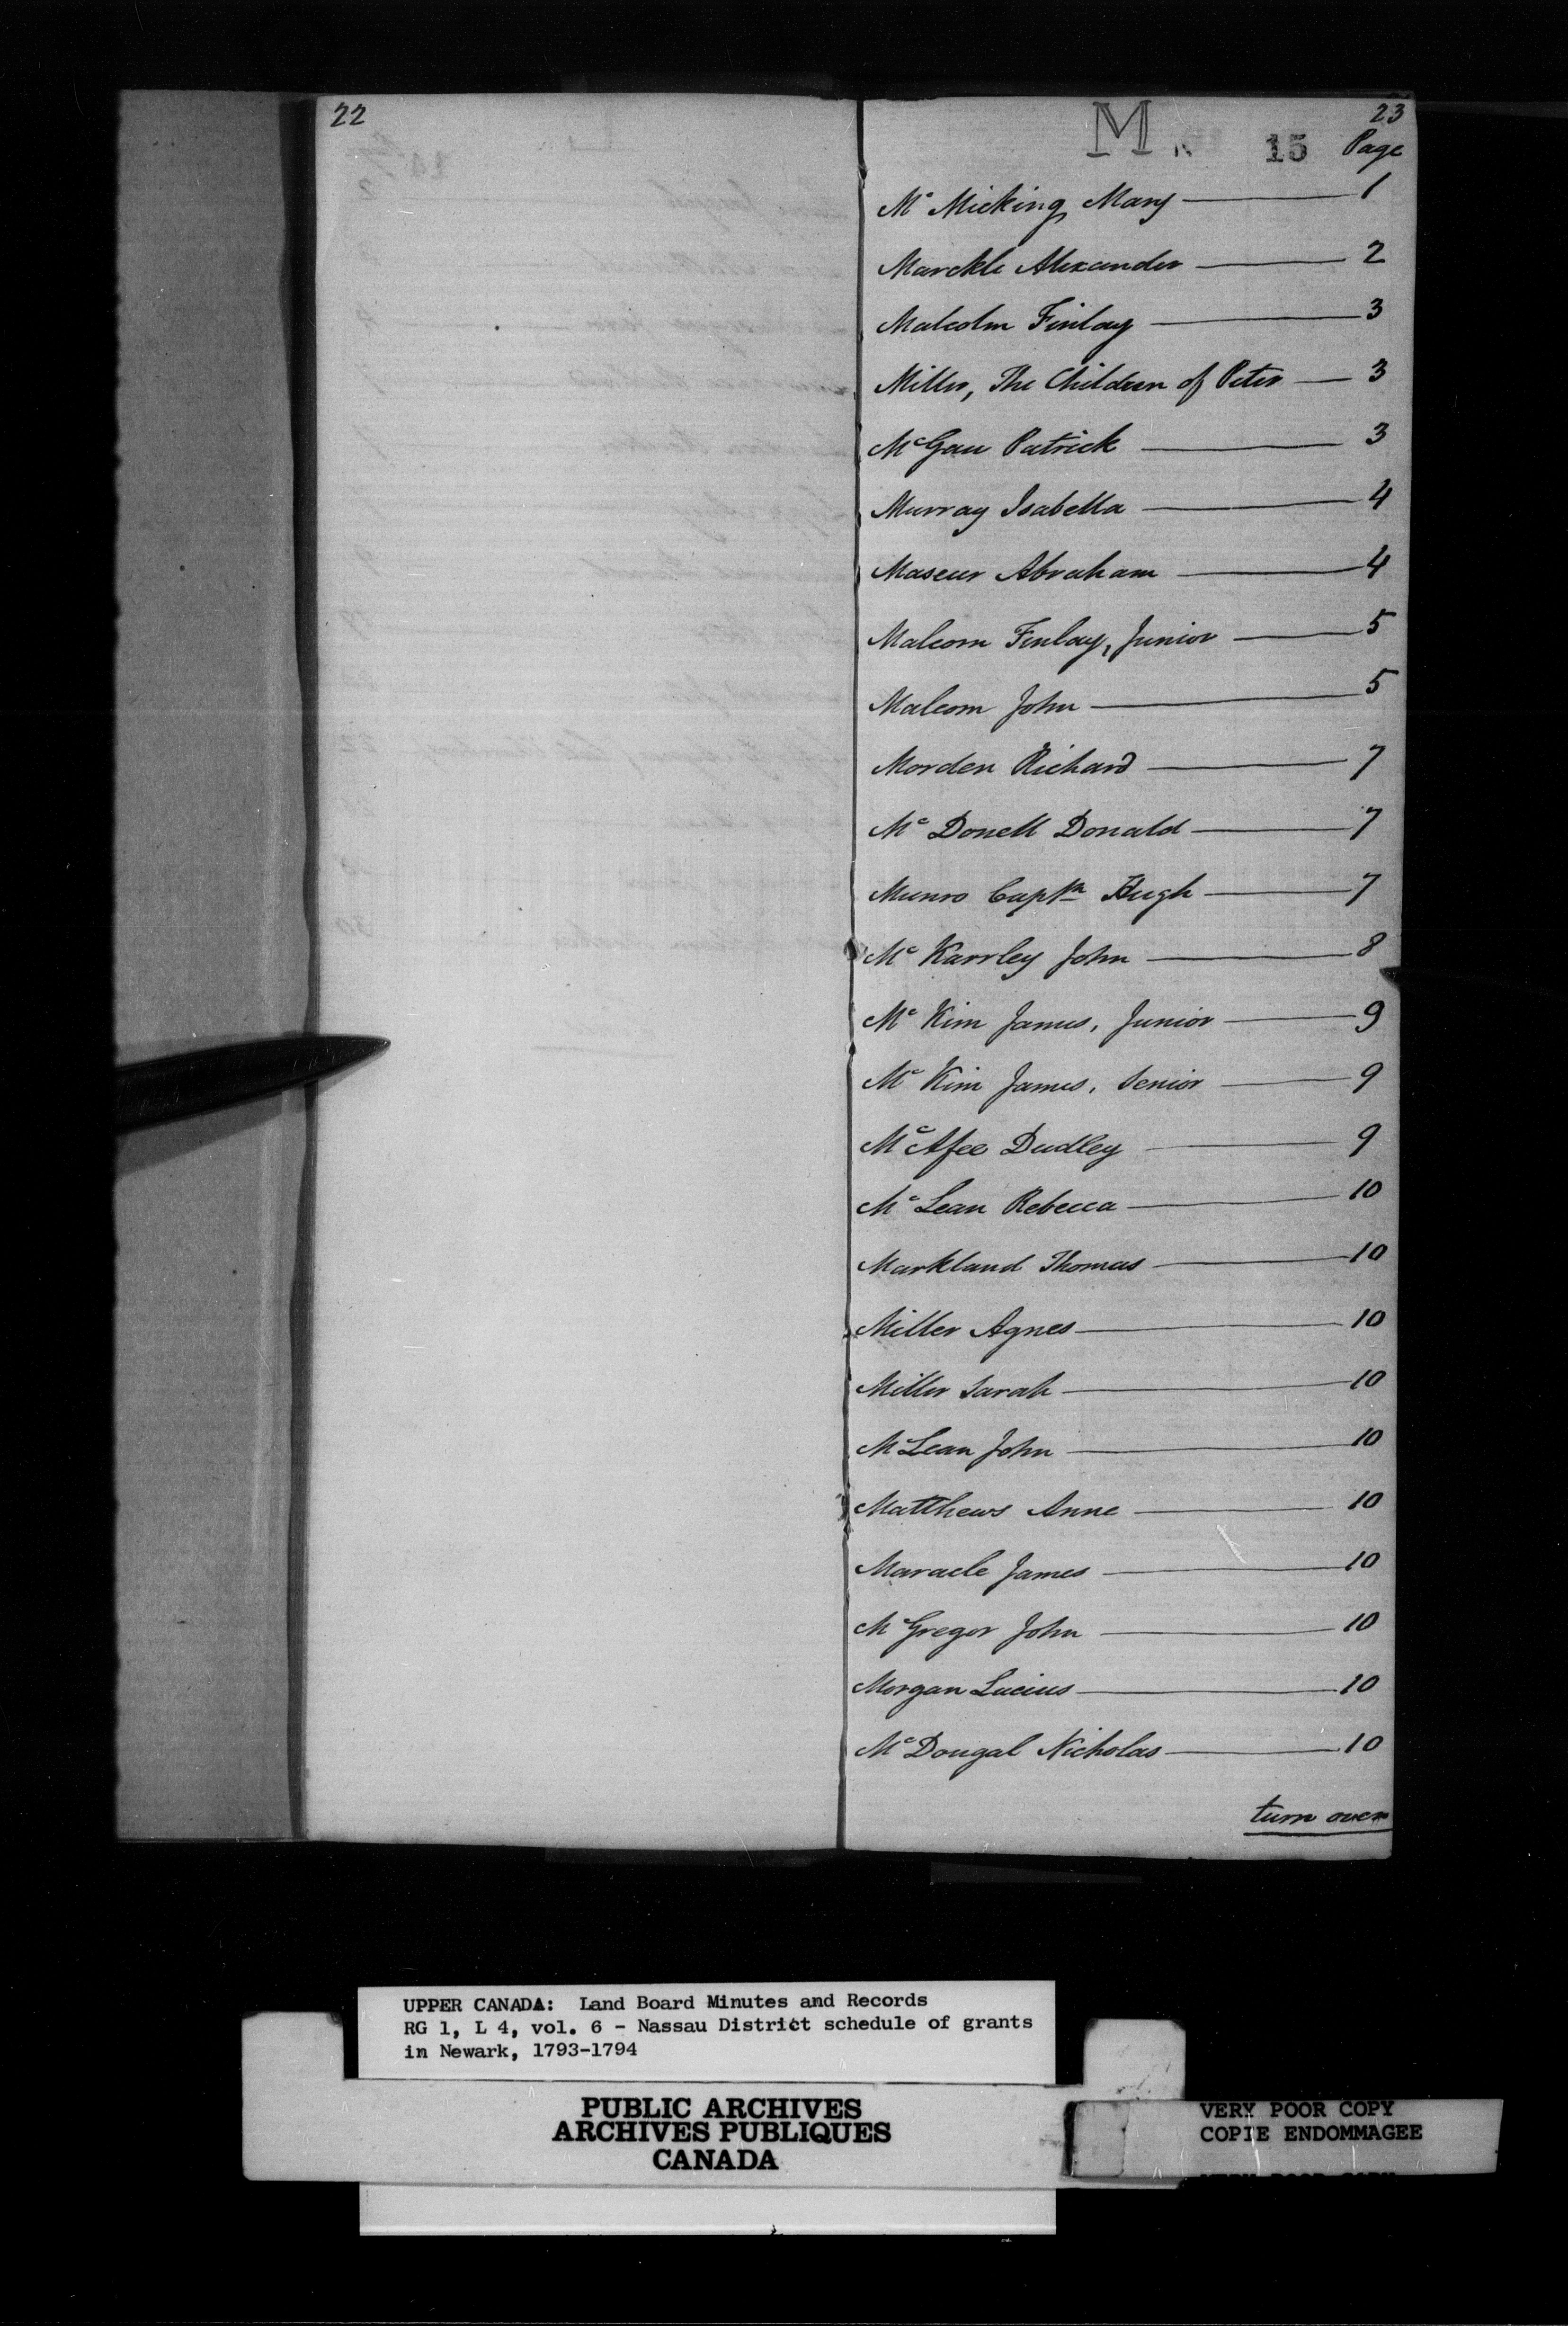 22
23
M
15 Page
Mc Micking Mary 1
Marckle Alexander 2
Malcolm Finlay 3
Miller, The Children of Peter 3
McGau Patrick 3
Murray Isabella 4
Maseur Abraham 4
Malcom Finlay, Junior 5
Malcom John 5
Morden Richard 7
Mc Donell Donald 7
Munro Captn Hugh 7
Mc Karrley John 8
Mc Kim James, Junior 9
Mc Kim James, Senior 9
Mc Afee Dudley 9
Mc Lean Rebecca 10
Markland Thomas 10
Miller Agnes 10
Miller Sarah 10
McLean John 10
Matthews Anne 10
Maracle James 10
McGregor John 10
Morgan Lucius 10
McDougal Nicholas 10
turn over
UPPER CANADA: Land Board Minutes and Records
RG 1, L 4, vol. 6 - Nassau District schedule of grants
in Newark, 1793-1794
PUBLIC ARCHIVES
ARCHIVES PUBLIQUES
CANADA
VERY POOR COPY
COPIE ENDOMMAGEE